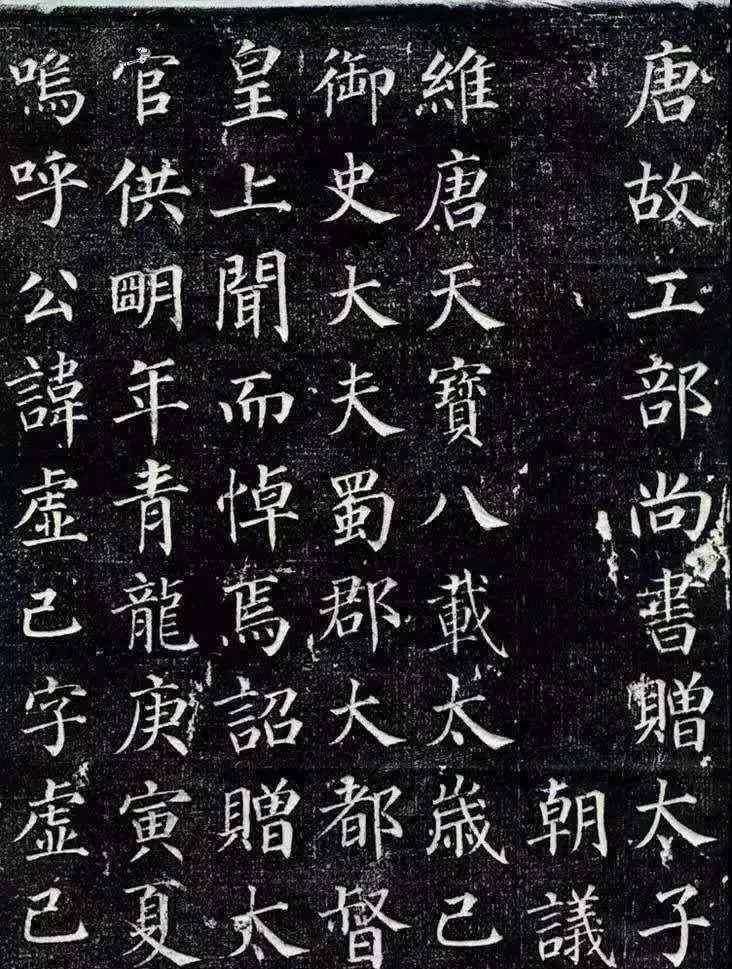 唐故工部尚書贈太子
朝議
維唐天寶八載太歲己
御史大夫蜀郡大都督
皇上聞而悼焉詔贈太
官供明年青龍庚寅夏
嗚呼公諱虛己字虛己